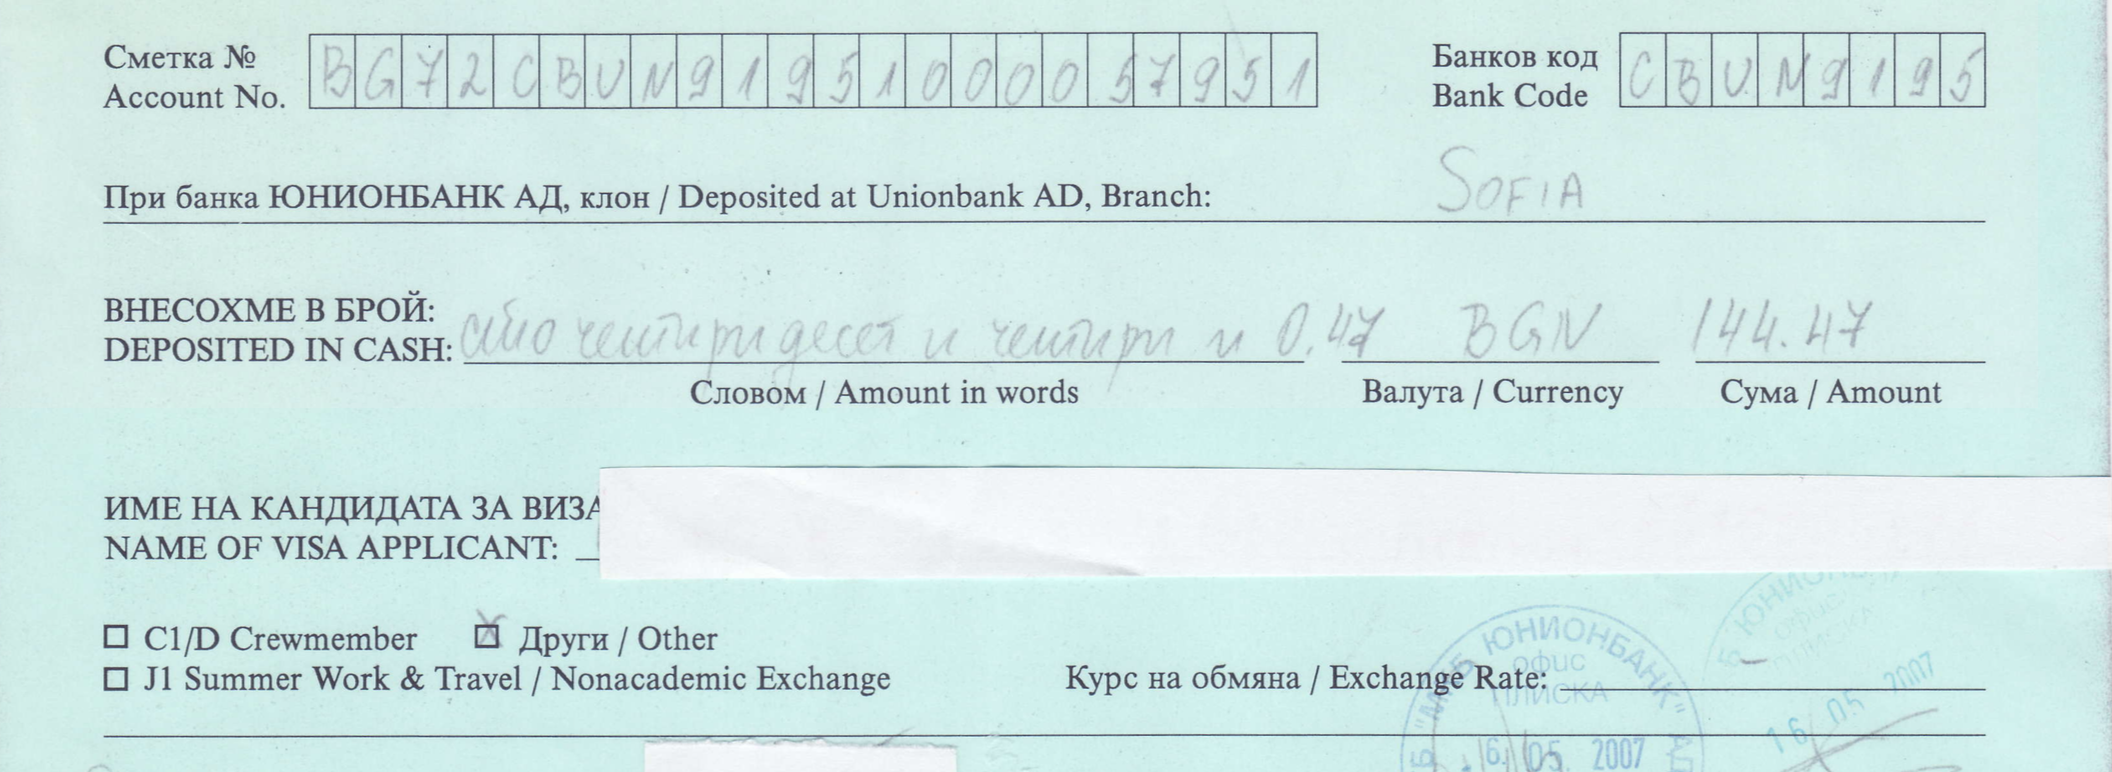 Сметка № BG72CBUN91951000057951 Банков код CBUN9195
Account No. Bank Code
SOFIA
При банка ЮНИОНБАНК АД, клон / Deposited at Unionbank AD, Branch:
ВНЕСОХМЕ В БРОЙ:
DEPOSITED IN CASH: сто четиридесет и четири и 0.47 BGN 144.47
Словом / Amount in words Валута / Currency Сума / Amount
ИМЕ НА КАНДИДАТА ЗА ВИЗА
NAME OF VISA APPLICANT:
C1/D Crewmember Други / Other
J1 Summer Work & Travel / Nonacademic Exchange Курс на обмяна / Exchange Rate:
Б "МКБ ЮНИОНБАНК" АД
офис
ПЛИСКА
16. 05. 2007
Б ЮНИОНБА
офис
ПЛИСКА
16 05 2007